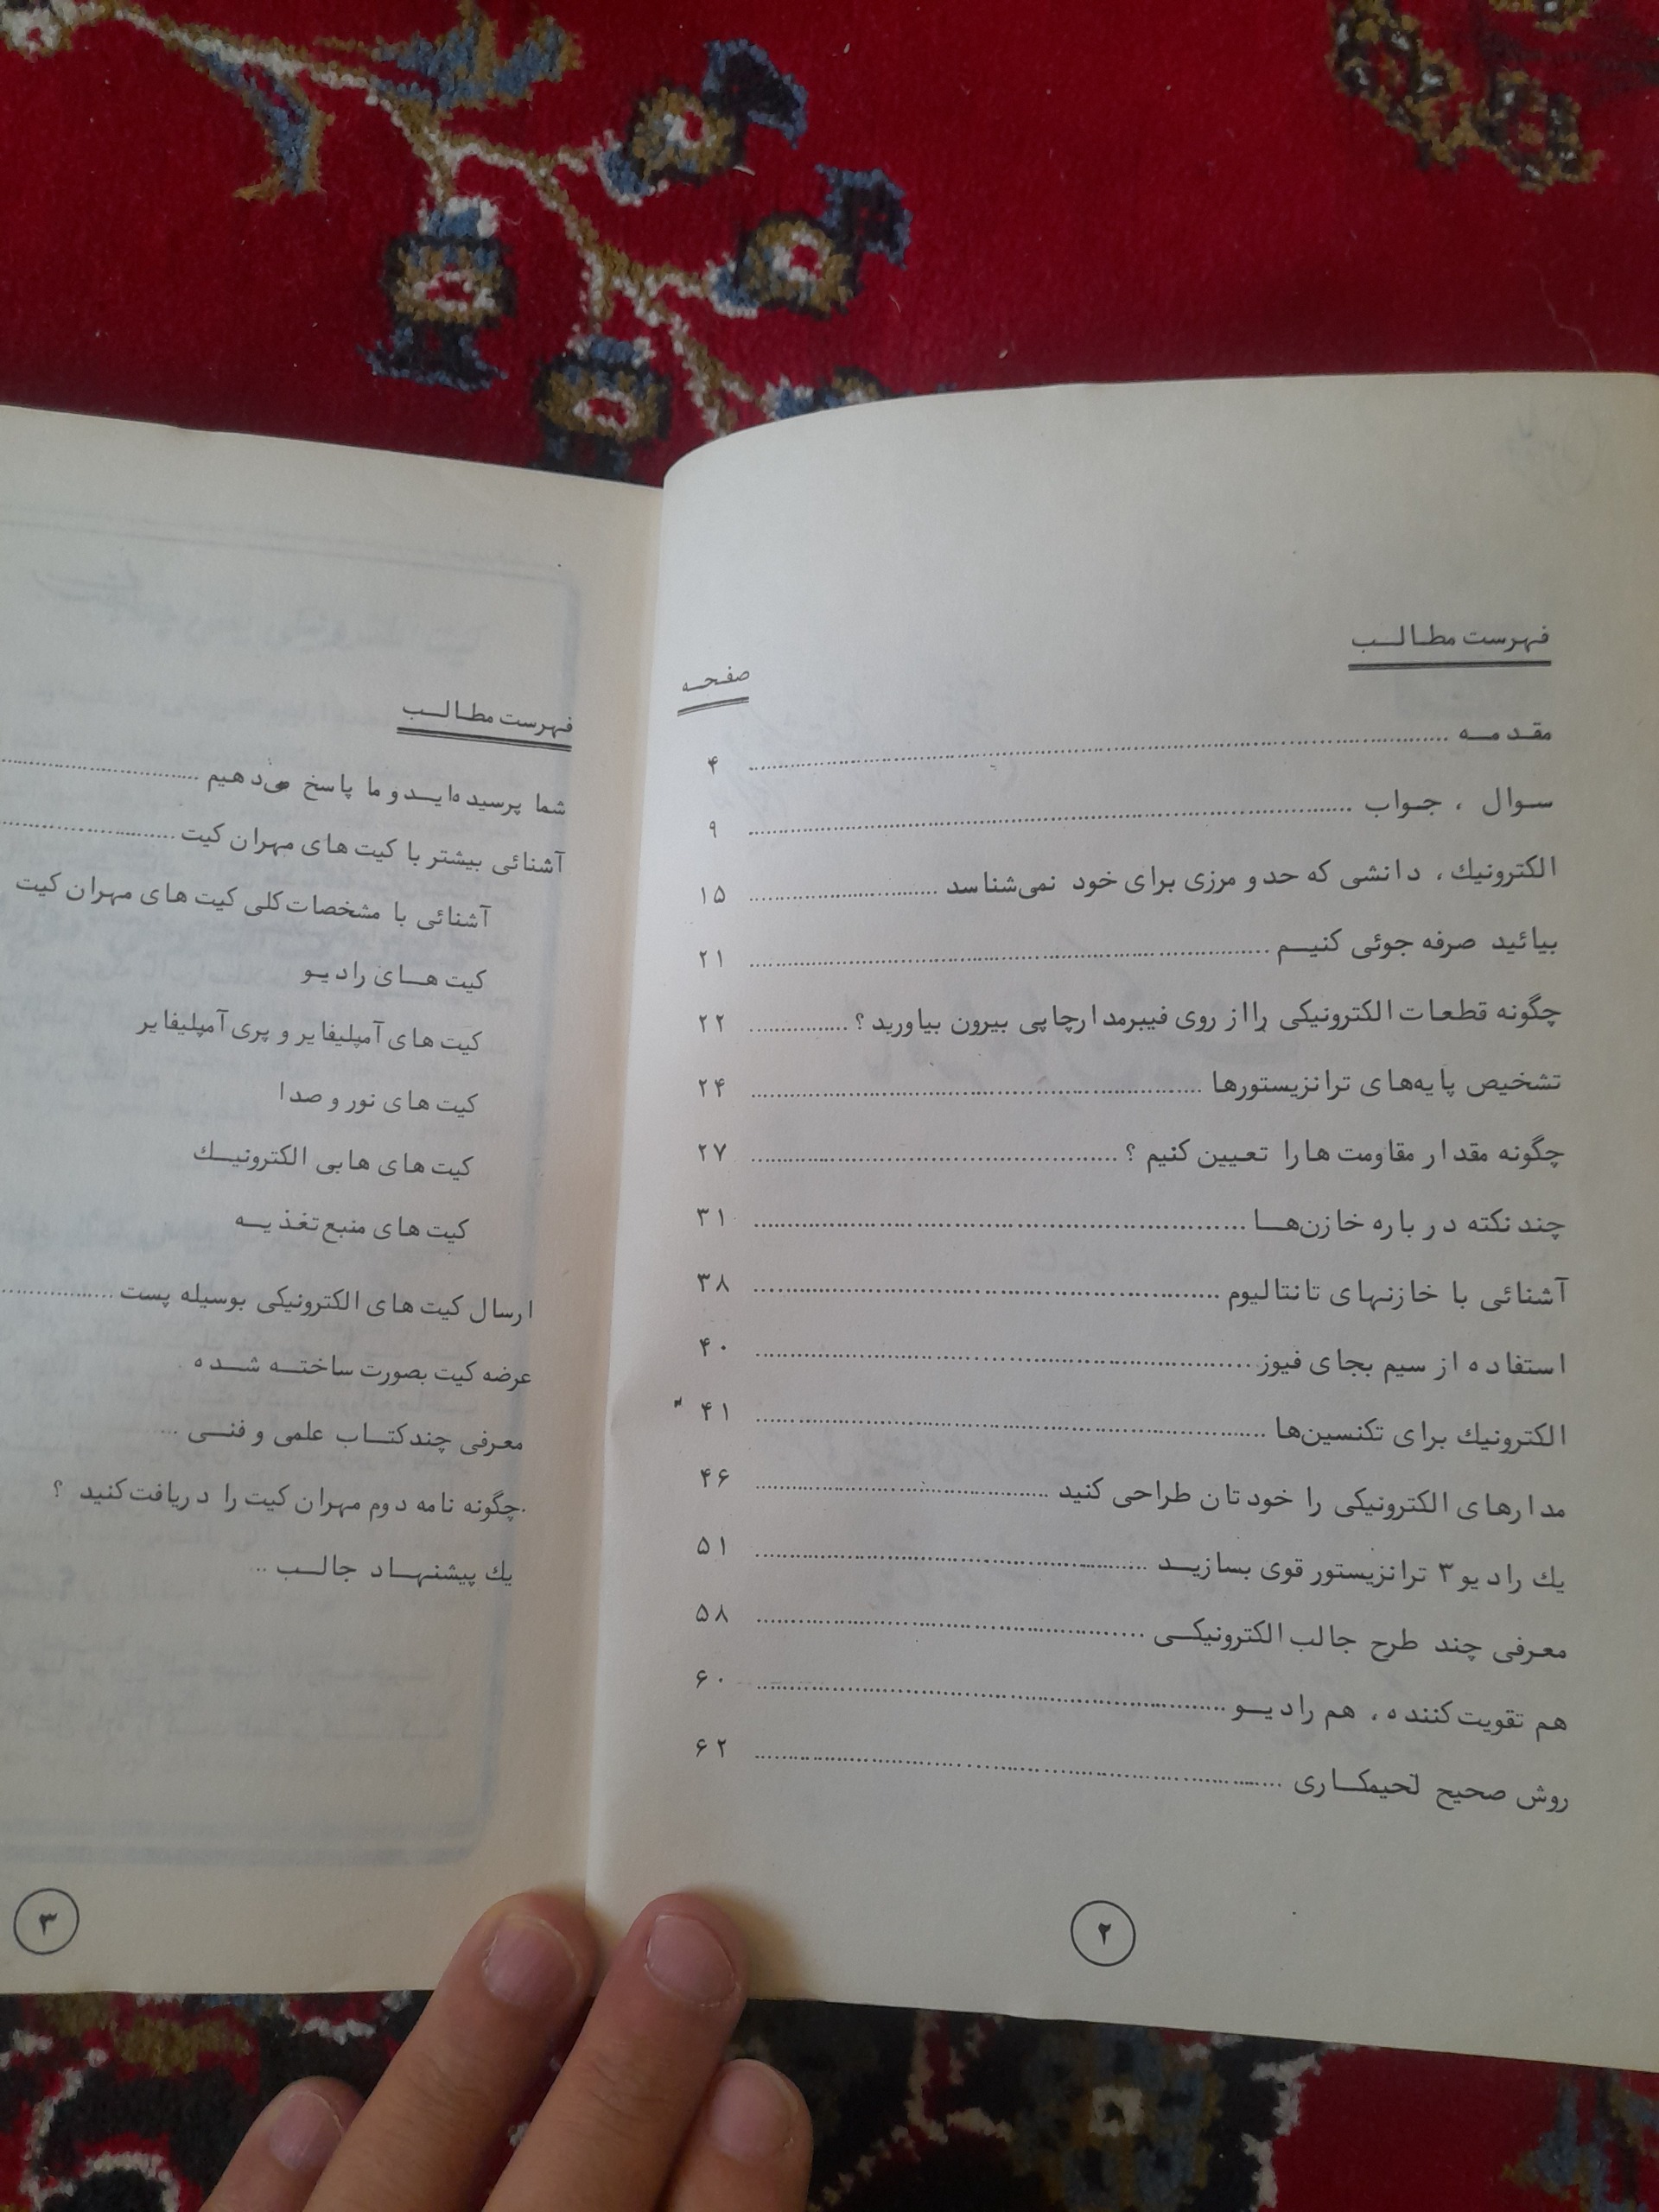 فهرست مطالب
صفحه
مقدمه ........ ۴
سوال ، جواب ........ ۹
الکترونیك ، دانشی که حد و مرزی برای خود نمی‌شناسد ........ ۱۵
بیائید صرفه جوئی کنیم ........ ۲۱
چگونه قطعات الکترونیکی را از روی فیبرمدارچاپی بیرون بیاورید ؟ ........ ۲۲
تشخیص پایه‌های ترانزیستورها ........ ۲۴
چگونه مقدار مقاومت ها را تعیین کنیم ؟ ........ ۲۷
چند نکته در باره خازن‌ها ........ ۳۱
آشنائی با خازنهای تانتالیوم ........ ۳۸
استفاده از سیم بجای فیوز ........ ۴۰
الکترونیك برای تکنسین‌ها ........ ۴۱
مدارهای الکترونیکی را خودتان طراحی کنید ........ ۴۶
یك رادیو ۳ ترانزیستور قوی بسازید ........ ۵۱
معرفی چند طرح جالب الکترونیکی ........ ۵۸
هم تقویت‌کننده ، هم رادیو ........ ۶۰
روش صحیح لحیمکاری ........ ۶۲
۲
فهرست مطالب
شما پرسیده‌اید و ما پاسخ می‌دهیم ........
آشنائی بیشتر با کیت های مهران کیت ........
آشنائی با مشخصات کلی کیت های مهران کیت
کیت های رادیو
کیت های آمپلیفایر و پری آمپلیفایر
کیت های نور و صدا
کیت های هابی الکترونیك
کیت های منبع تغذیه
ارسال کیت های الکترونیکی بوسیله پست ........
عرضه کیت بصورت ساخته شده
معرفی چند کتاب علمی و فنی ...
چگونه نامه دوم مهران کیت را دریافت کنید ؟
یك پیشنهاد جالب ...
۳